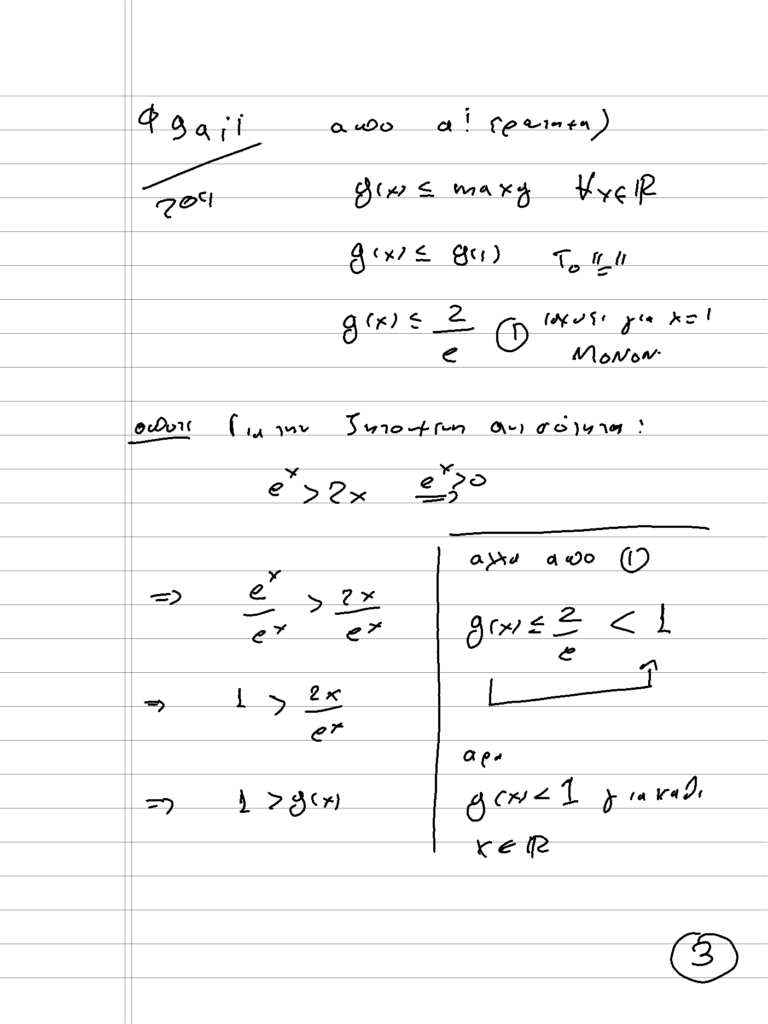 από α! ερώτημα)
g(x) ≤ max g ∀x∈ℝ
g(x) ≤ g(1) Το "="
g(x) ≤ 2/e ① ισχύει για x=1
ΜΟΝΟΝ.
Για την ζητούμενη ανισότητα:
e^x > 2x e^x>0 ⇒
⇒ e^x/e^x > 2x/e^x
⇒ 1 > 2x/e^x
⇒ 1 > g(x)
αλλά από ①
g(x) ≤ 2/e < 1
άρα
g(x) < 1 για κάθε
x ∈ ℝ
3